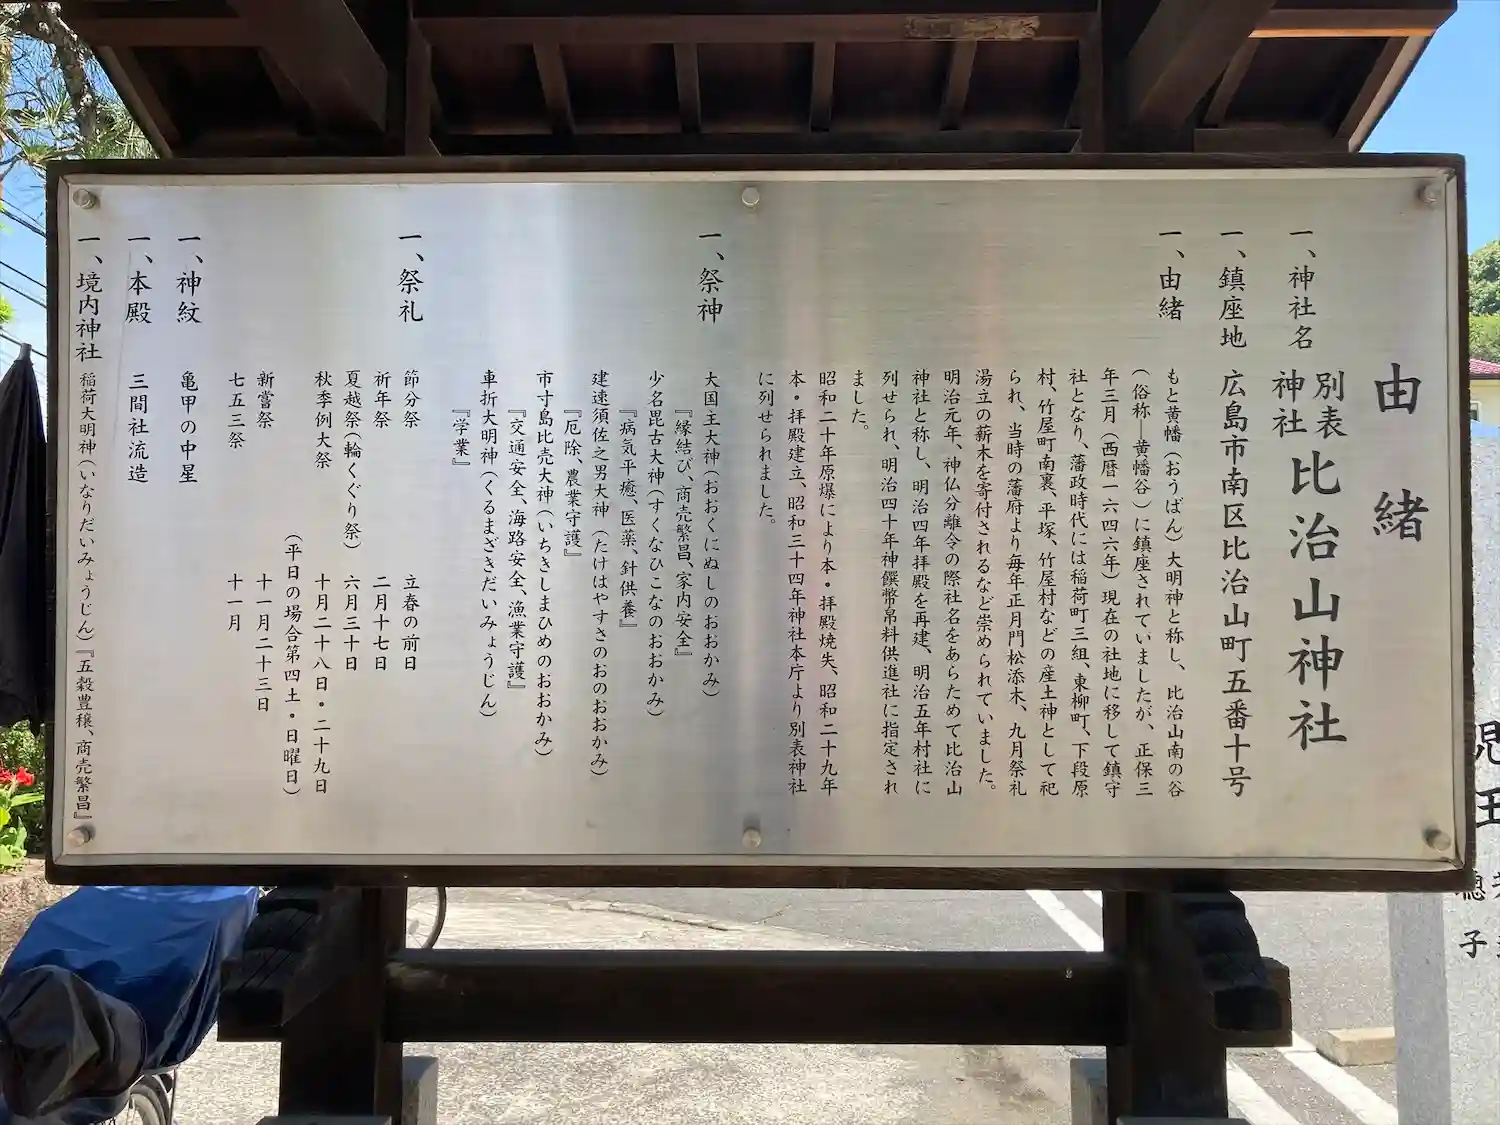 由緒
一、神社名 別表神社 比治山神社
一、鎮座地 広島市南区比治山町五番十号
一、由緒 もと黄幡（おうばん）大明神と称し、比治山南の谷
（俗称―黄幡谷）に鎮座されていましたが、正保三
年三月（西暦一六四六年）現在の社地に移して鎮守
社となり、藩政時代には稲荷町三組、東柳町、下段原
村、竹屋町南裏、平塚、竹屋村などの産土神として祀
られ、当時の藩府より毎年正月門松添木、九月祭礼
湯立の薪木を寄付されるなど崇められていました。
明治元年、神仏分離令の際社名をあらためて比治山
神社と称し、明治四年拝殿を再建、明治五年村社に
列せられ、明治四十年神饌幣帛料供進社に指定され
ました。
昭和二十年原爆により本・拝殿焼失、昭和二十九年
本・拝殿建立、昭和三十四年神社本庁より別表神社
に列せられました。
一、祭神 大国主大神（おおくにぬしのおおかみ）
『縁結び、商売繁昌、家内安全』
少名毘古大神（すくなひこなのおおかみ）
『病気平癒、医薬、針供養』
建速須佐之男大神（たけはやすさのおのおおかみ）
『厄除、農業守護』
市寸島比売大神（いちきしまひめのおおかみ）
『交通安全、海路安全、漁業守護』
車折大明神（くるまざきだいみょうじん）
『学業』
一、祭礼 節分祭 立春の前日
祈年祭 二月十七日
夏越祭（輪くぐり祭） 六月三十日
秋季例大祭 十月二十八日・二十九日
（平日の場合第四土・日曜日）
新嘗祭 十一月二十三日
七五三祭 十一月
一、神紋 亀甲の中星
一、本殿 三間社流造
一、境内神社 稲荷大明神（いなりだいみょうじん）『五穀豊穣、商売繁昌』